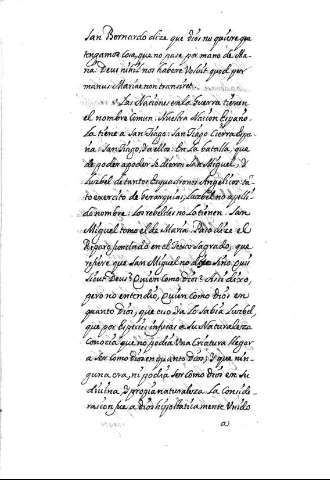 San Bernardo dize que dios no quiere que
tengamos cosa, que no pase por mano de Ma-
ria. Deus nihil nos habere voluit quod per
manus Mariae non transiret.
Las Naciones en la Guerra tienen
el nombre comun. Nuestra Nacion Españo-
la tiene a San Tiago: San Tiago Cierra Espa-
ña San Tiago, y a ellos. En la batalla, que
de poder a poder se dieron San Miguel, y
Luzbel de tantos Esquadrones Angelicos, tan-
to exercito de herarquias, Luzbel no apelli-
do nombre: los rebeldes no lo tienen. San
Miguel tomo el de Maria. Pero dize el
Reparo fundado en el Texto Sagrado, que
refiere que San Miguel no dijo sino: quis
sicut Deus? Quien como Dios? Assi dixo,
pero no entendio, Quien como Dios en
quanto Dios, que eso ya lo sabia Luzbel,
que por Especies infusas a su Naturaleza
Conocia que no podia Una Criatura llegar
a ser como Dios en quanto Dios; y que nin-
guna era, ni podia ser como Dios en su
divina, y propia naturaleza. La Conside-
racion fue a Dios hipostaticamente Unido
a